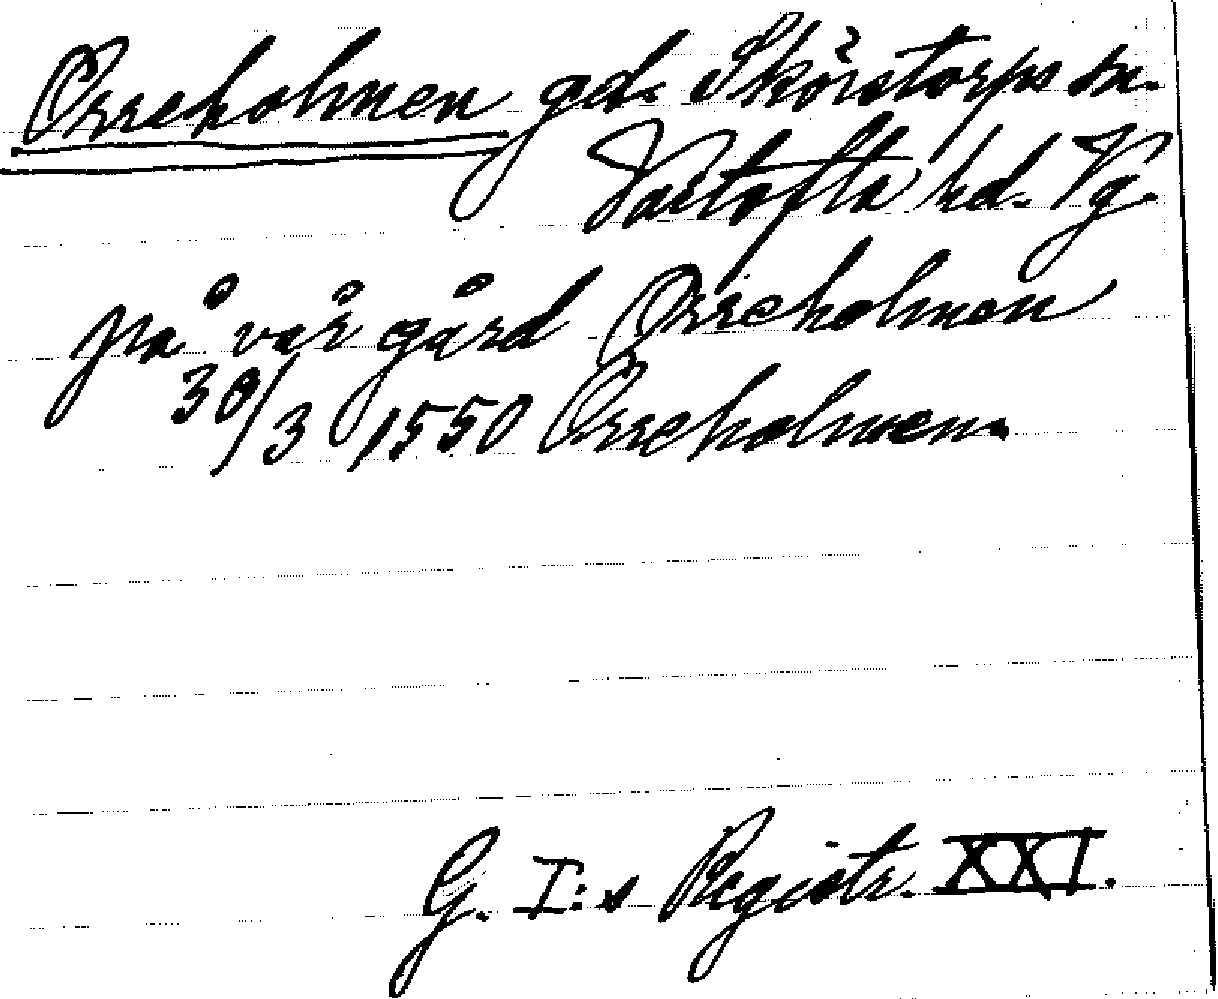 Orreholmen gd. Skörstorps sn.
Vartofta hd. Vg.
på vår gård Orreholmen
30/3 1550 Orreholmen.
G. I:s Registr. XXI.